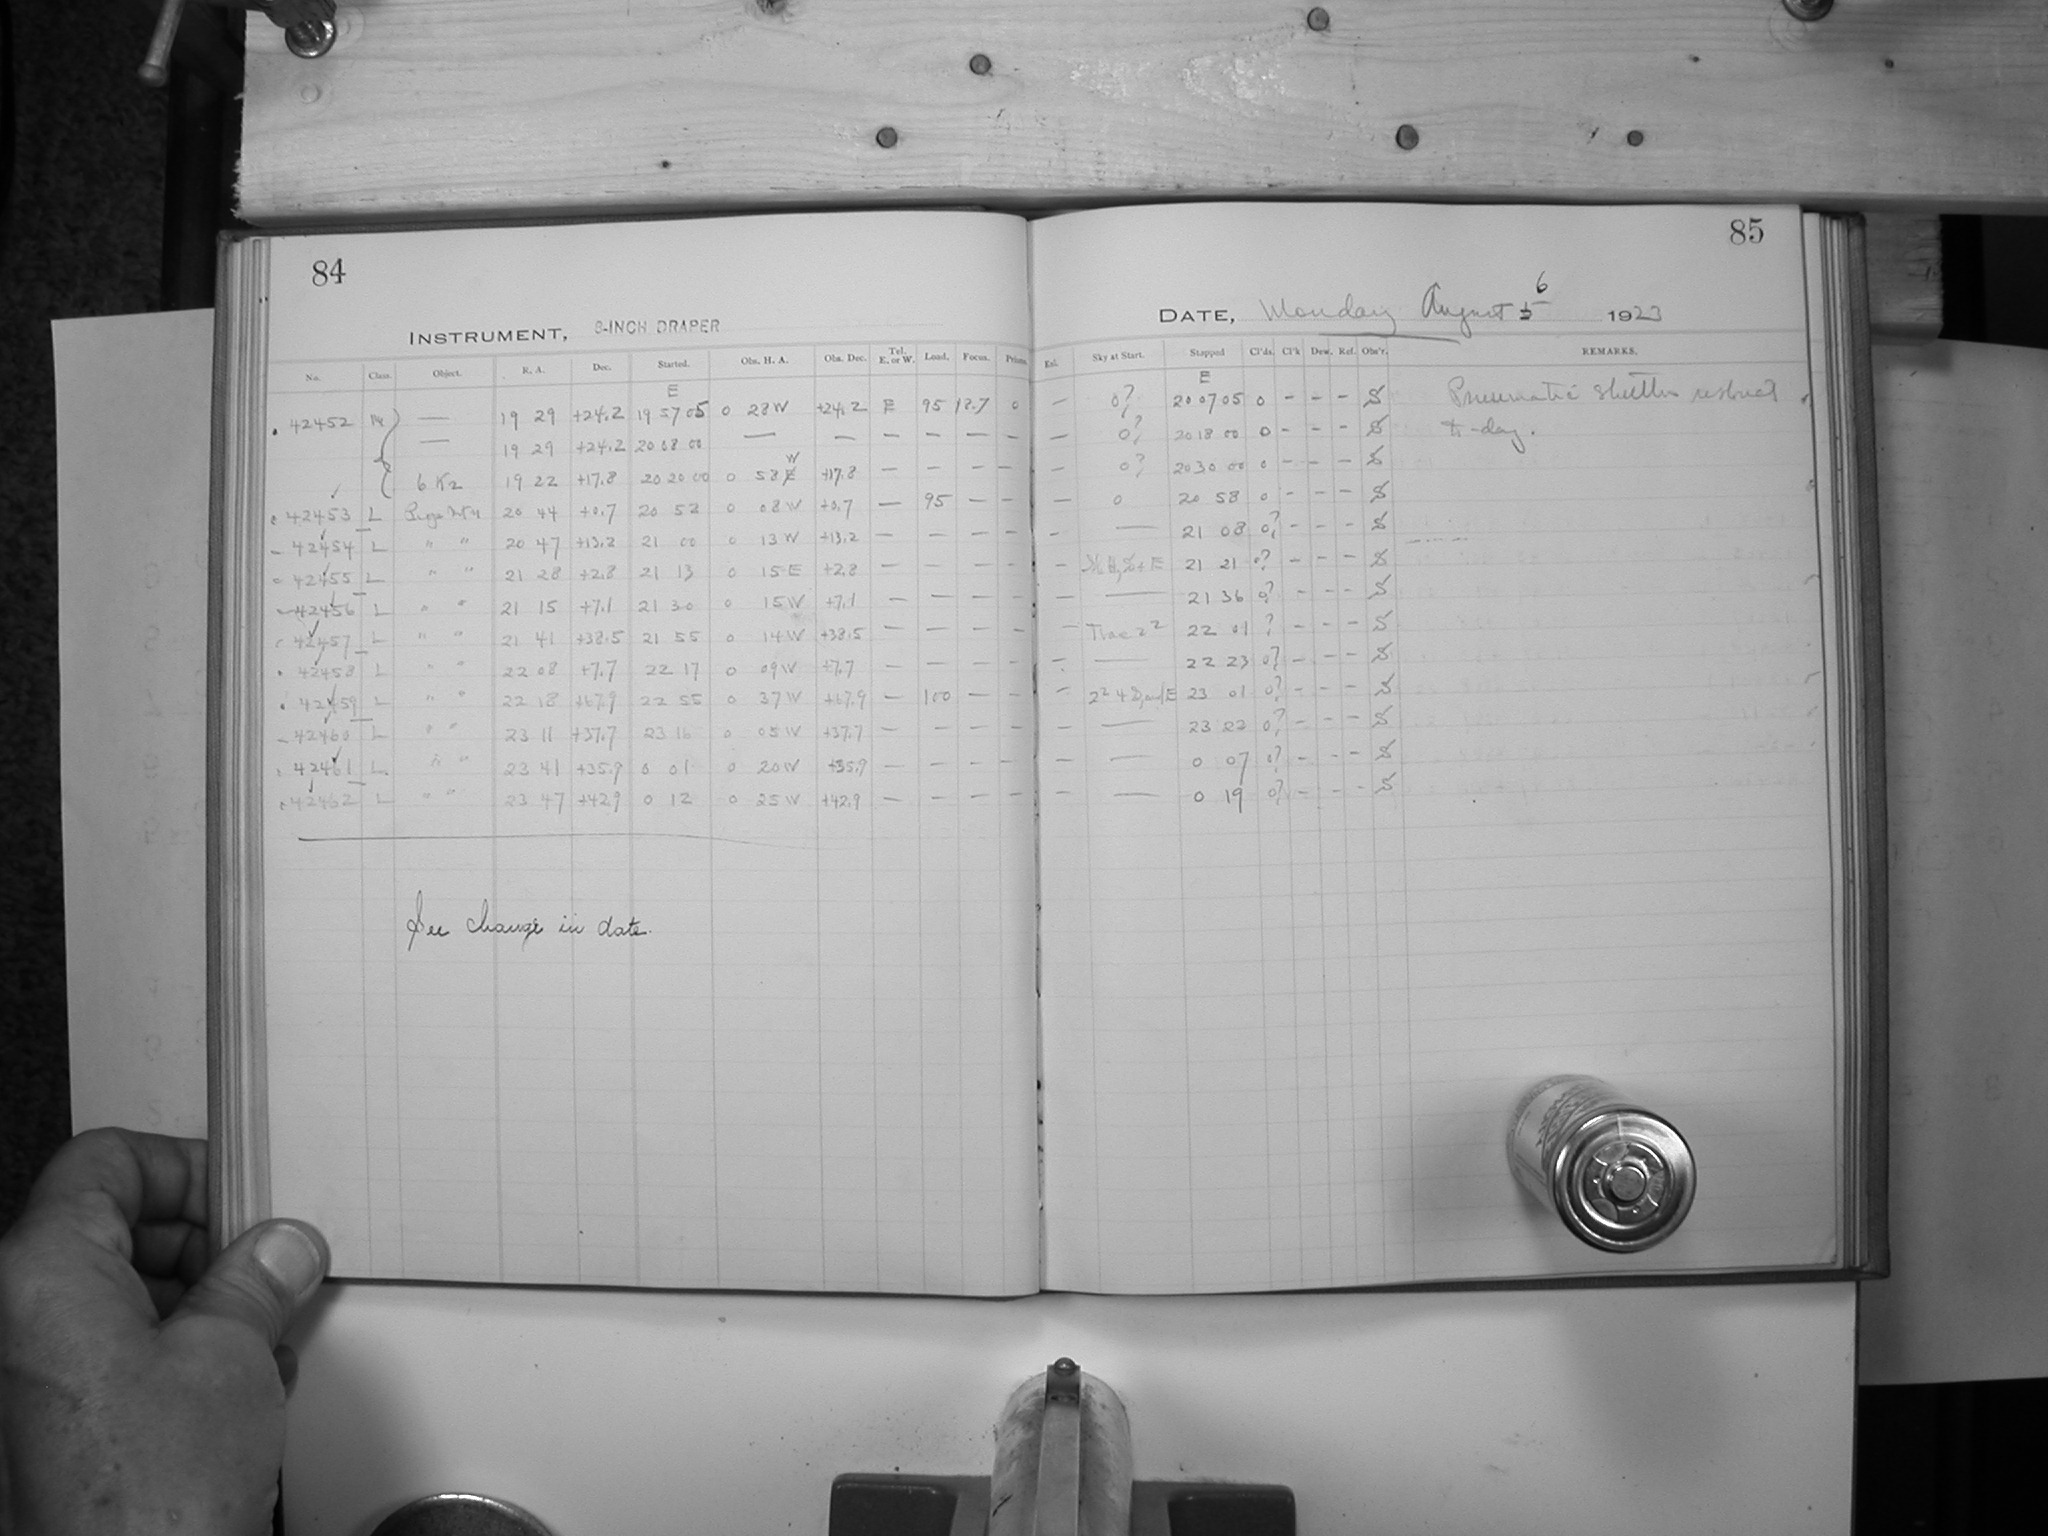 84
INSTRUMENT, 8-INCH DRAPER
No. Class. Object. R. A. Dec. Started. Obs. H. A. Obs. Dec. Tel. E. or W. Load. Focus. Prism.
E
42452 — 19 29 +24.2 19 57 05 0 28 W +24.2 E 95 0
— 19 29 +24.2 20 08 00 — — — — — —
6 K2 19 22 +17.8 20 20 00 0 58 W +17.8 — — — —
42453 L 20 44 +0.7 20 52 0 08 W +0.7 — 95 — —
42454 L " " 20 47 +13.2 21 00 0 13 W +13.2 — — — —
42455 L " " 21 28 +2.8 21 13 0 15 E +2.8 — — — —
42456 L " " 21 15 +7.1 21 30 0 15 W +7.1 — — — —
42457 L " " 21 41 +38.5 21 55 0 14 W +38.5 — — — —
42458 L " " 22 08 +7.7 22 17 0 09 W +7.7 — — — —
42459 L " " 22 18 +67.9 22 55 0 37 W +67.9 — 100 — —
42460 L " " 23 11 +37.7 23 16 0 05 W +37.7 — — — —
42461 L " " 23 41 +35.9 0 01 0 20 W +35.9 — — — —
42462 L " " 23 47 +42.9 0 12 0 25 W +42.9 — — — —
See change in date.
85
DATE, Monday August 6 1923
Exl. Sky at Start. Stopped Cl'ds. Cl'k Dew. Ref. Obs'r. REMARKS.
E
— 0? 20 07 05 0 – – – S Pneumatic shutter
— 0? 20 18 00 0 – – – S to-day.
— 0? 20 30 00 0 – – – S
— 0 20 58 0 – – – S
— — 21 08 0? – – – S
— 21 21 0? – – – S
— — 21 36 0? – – – S
— 22 01 ? – – – S
— — 22 23 0? – – – S
— 23 01 0? – – – S
— — 23 22 0? – – – S
— — 0 07 0? – – – S
— — 0 19 0? – – – S